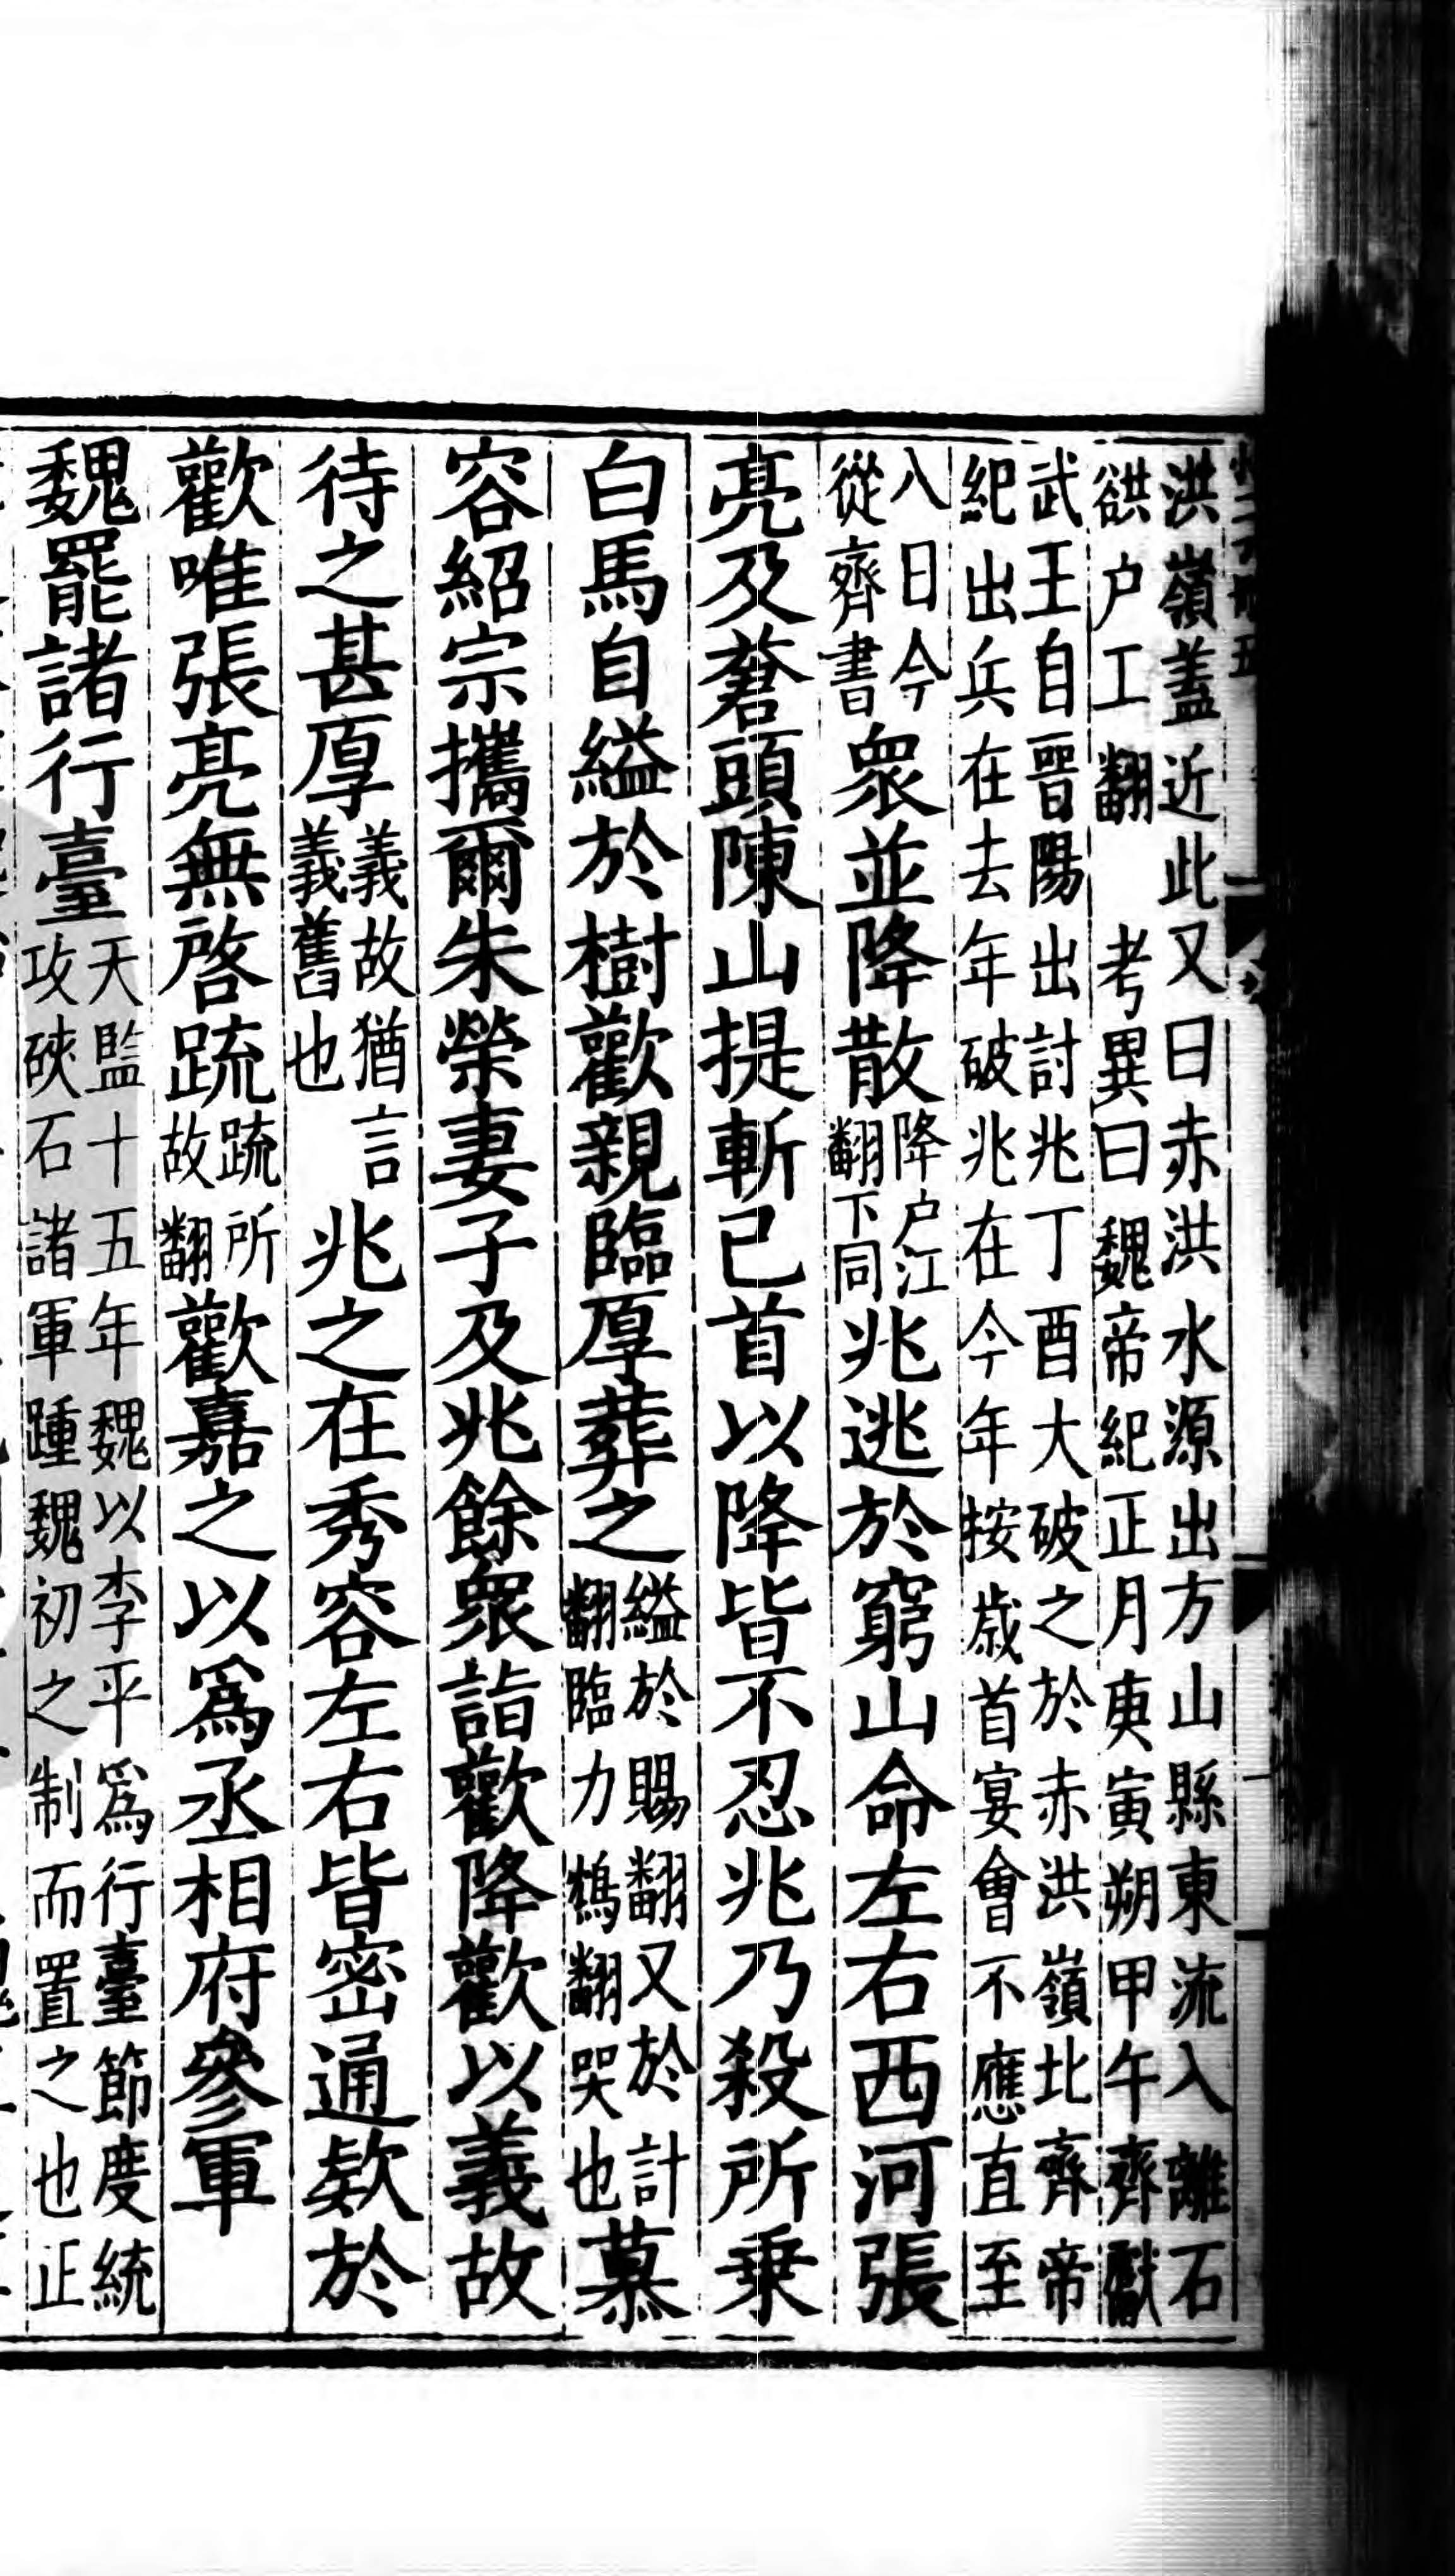 洪嶺蓋近此又曰赤洪水源出方山縣東流入離石
谼户工翻　考異曰魏帝紀正月庚寅朔甲午齊獻
武王自晉陽出討兆丁酉大破之於赤洪嶺北齊帝
紀出兵在去年破兆在今年按歲首宴會不應直至
八日今
從齊書
衆並降散
降户江
翻下同
兆逃於窮山命左右西河張
亮及蒼頭陳山提斬己首以降皆不忍兆乃殺所乗
白馬自縊於樹歡親臨厚葬之
縊於賜翻又於計
翻臨力鴆翻哭也
慕
容紹宗攜爾朱榮妻子及兆餘衆詣歡降歡以義故
待之甚厚
義故猶言
義舊也
兆之在秀容左右皆密通欵於
歡唯張亮無啓䟽
䟽所
故翻
歡嘉之以爲丞相府參軍
魏罷諸行臺
天監十五年魏以李平爲行臺節度統
攻硤石諸軍踵魏初之制而置之也正